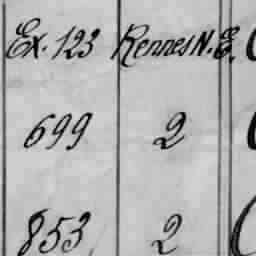 Ex. 123 Rennes N. E.
699 2
853 2